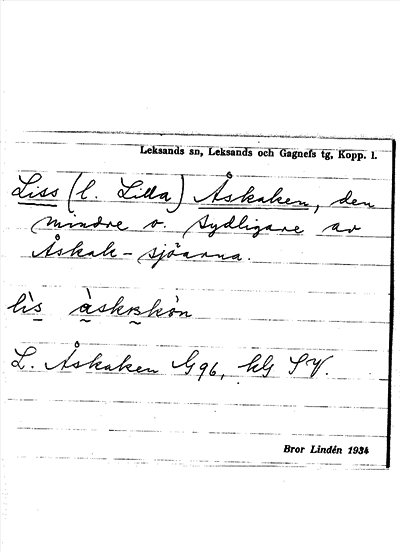 Leksands sn, Leksands och Gagnefs tg, Kopp. l.
Liss (l. Lilla) Åskaken, den
mindre o. sydligare av
Åskak-sjöarna.
lìs àskʀskòn
L. Åskaken G 96, kG SV.
Bror Lindén 1934